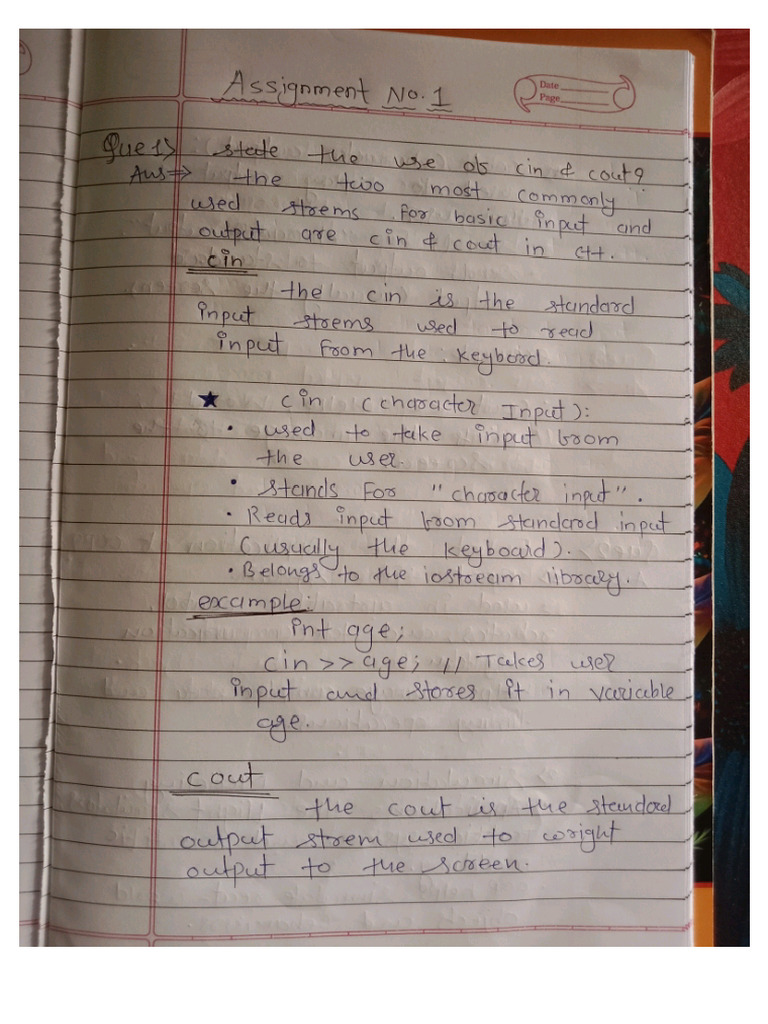 Assignment No. 1
Date
Page
Que 1) State the use of cin & cout?
Ans → the two most commonly
used strems for basic input and
output are cin & cout in c++.
cin
the cin is the standard
input strems used to read
input from the keybord.
★ cin (character Input):
• used to take input from
the user.
• stands for "character input".
• Reads input from standard input
(usually the keyboard).
• Belongs to the iostream library.
example:
int age;
cin >> age; // Takes user
input and stores it in variable
age.
cout
the cout is the standard
output strem used to wright
output to the screen.